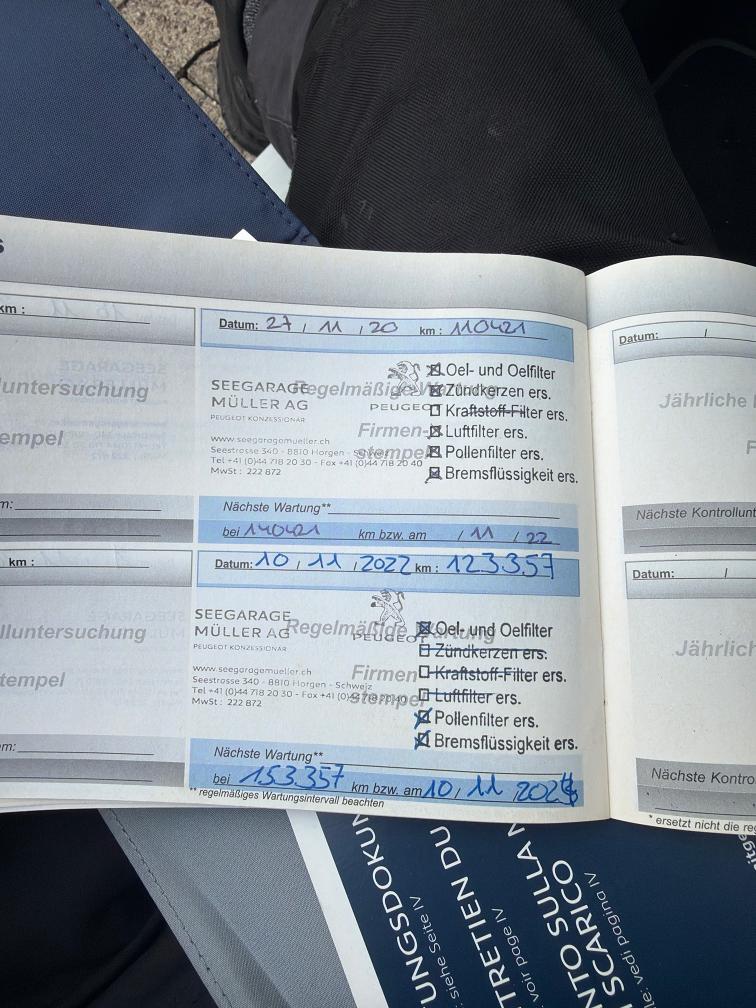 s
km :
luntersuchung
empel
m:
Datum: 27 / 11 / 20 km : 110421
SEEGARAGE
MÜLLER AG
PEUGEOT KONZESSIONÄR
www.seegaragemueller.ch
Seestrasse 340 - 8810 Horgen - Schweiz
Tel +41 (0)44 718 20 30 - Fax +41 (0)44 718 20 40
MwSt : 222 872
Regelmäßige Wartung
PEUGEOT
Firmen-
stempel
Oel- und Oelfilter
Zündkerzen ers.
Kraftstoff-Filter ers.
Luftfilter ers.
Pollenfilter ers.
Bremsflüssigkeit ers.
Nächste Wartung**
bei 140421 km bzw. am / 11 / 22
km :
lluntersuchung
tempel
m:
Datum: 10 / 11 / 2022 km : 123357
SEEGARAGE
MÜLLER AG
PEUGEOT KONZESSIONÄR
www.seegaragemueller.ch
Seestrasse 340 - 8810 Horgen - Schweiz
Tel +41 (0)44 718 20 30 - Fax +41 (0)44 718 20 40
MwSt : 222 872
Regelmäßige Wartung
PEUGEOT
Firmen
stempel
Oel- und Oelfilter
Zündkerzen ers.
Kraftstoff-Filter ers.
Luftfilter ers.
Pollenfilter ers.
Bremsflüssigkeit ers.
Nächste Wartung**
bei 153357 km bzw. am 10 / 11 / 2024
** regelmäßiges Wartungsintervall beachten
Datum: /
Jährliche
F
Nächste Kontrollunt
Datum: /
Jährlich
Nächste Kontro
* ersetzt nicht die re
UNGSDOKUN
: siehe Seite IV
TRETIEN DU
voir page IV
NTO SULLA
SCARICO
le: vedi pagina IV